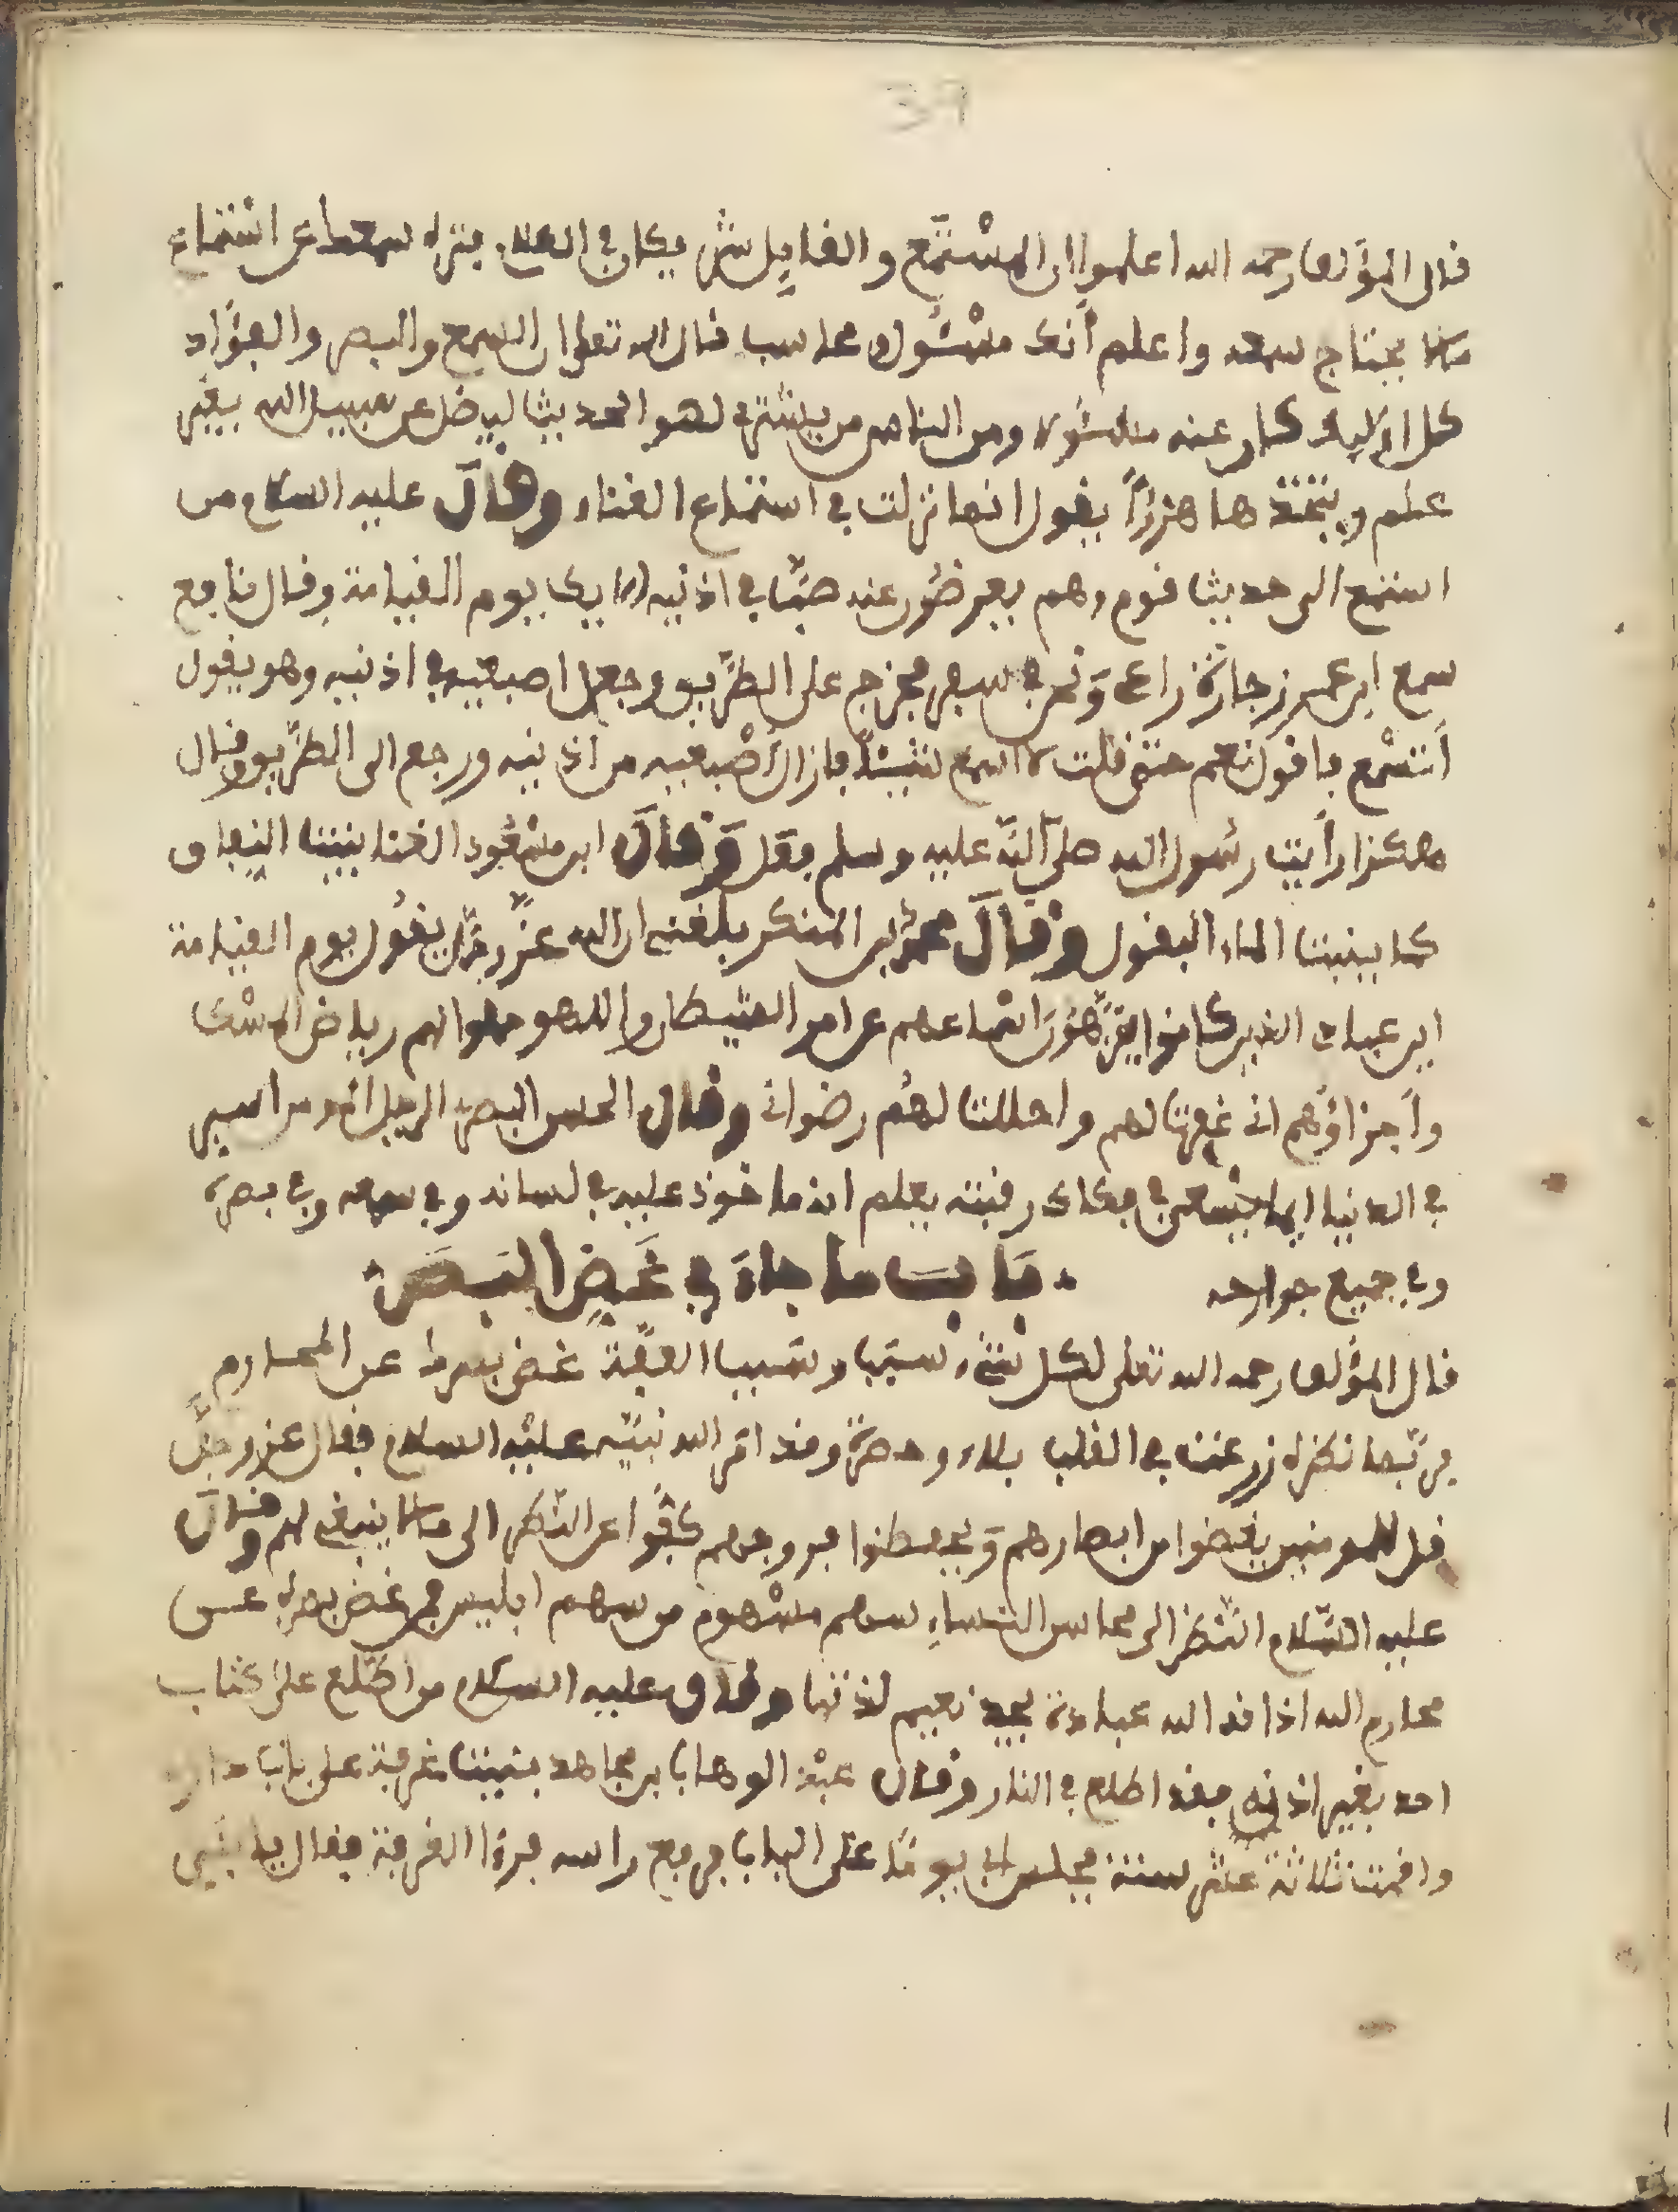 39
قال المؤلف رحمه الله اعلموا ان المستمع والقايل شريكان في العلا ينزه سمعها عن استماع
ما لا يحتاج سمعه واعلم أنك مسئول محاسب قال الله تعلى ان السمع والبصر والفؤاد
كل اوليك كان عنه مسئولا ومن الناس من يشتري لهو الحديث ليضل عن سبيل الله بغير
علم ويتخذها هزؤاً يقول انها نزلت في استماع الغناء وقال عليه السلام من
استمع الى حديث قوم وهم يعرضون عنه صبّ في اذنيه الانك يوم القيامة وقال نافع
سمع ابن عمر زمارة راع ونحن في سفر فخرج على الطريق وجعل اصبعيه في اذنيه وهو يقول
أتسمع فاقول نعم حتى قلت لا اسمع شيئا فازال أصبعيه من اذنيه ورجع الى الطريق وقال
هكذا رأيت رسول الله صلى الله عليه وسلم فعل وقال ابن مسعود الغنا ينبت النفاق
كما ينبت الماء البقول وقال محمد بن المنكدر بلغني ان الله عزّ وجلّ يقول يوم القيامة
اين عبادي الذين كانوا ينزّهون اسماعهم عن امر الشيطان واللهو حلوانهم رياض المسك
وأجزاؤهم اني غفرت لهم واحللت لهم رضواني وقال الحسن البصري الرجل المؤمن اسير
في الدنيا انما يسعى في فكاك رقبته يعلم انه ماخوذ عليه في لسانه وفي سمعه وفي بصره
وفي جميع جوارحه باب ما جاء في غض البصر
قال المؤلف رحمه الله تعلى لكل شيء سبب وسبب العفّة غض بصرك عن المحارم
فربّما نظرة زرعت في القلب بلاء وحسرة وقد امر الله نبيّه عليه السلام فقال عز وجلّ
قل للمومنين يغضوا من ابصارهم ويحفظوا فروجهم كفّوا عن النظر الى ما لا ينبغي لهم وقال
عليه السّلام النّظر الى محاسن النساءِ سهم مسموم من سهم ابليس فمن غض بصره عن
محارم الله اذاقه الله عبادة يجد نعيم لذتها وقال عليه السلام من اطّلع على كتاب
احد بغير اذنه فقد اطلع في النار وقال عبد الوهاب بن مجاهد بنيت غرفة على باب داري
واقمت ثلاثة عشر سنة فجلس ابي يوما على الباب فرفع راسه فرءا الغرفة فقال يا بنّي